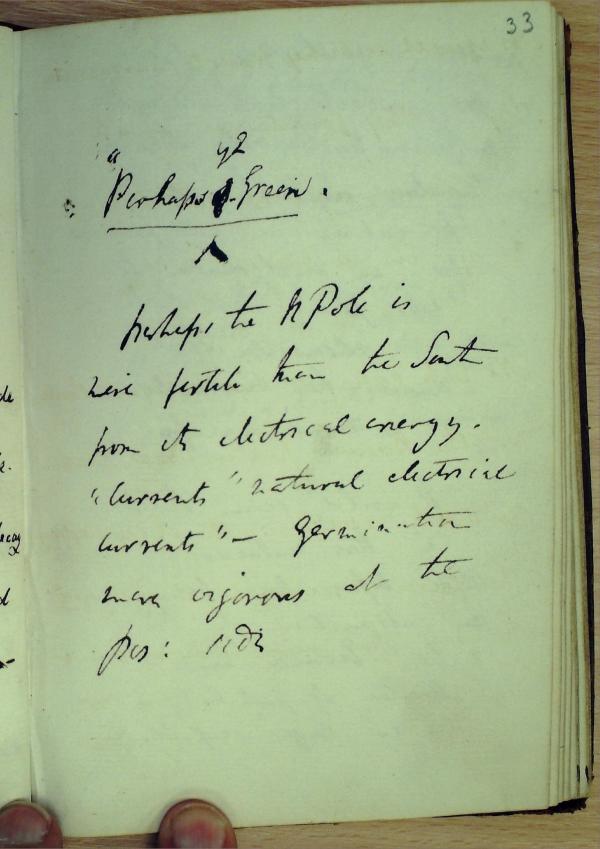 33
Perhaps Green.
perhaps the N Pole is
more fertile than the South
from its electrical energy.
"Currents" natural electrical
currents" — Germination
more vigorous at the
pos: side